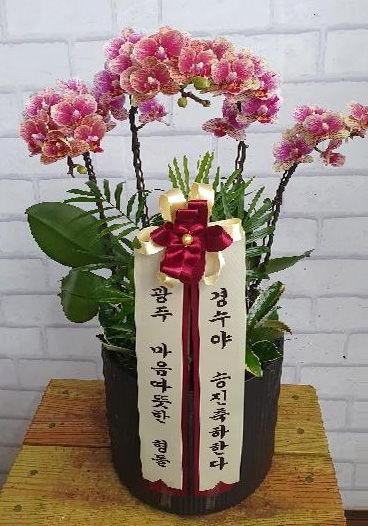 경수야 승진축하한다
광주 마음따뜻한 형들